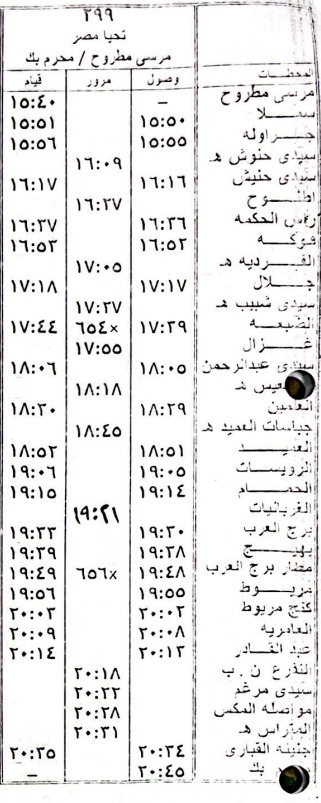 ٢٩٩
تحيا مصر
مرسى مطروح / محرم بك
المحطات وصول مرور قيام
مرسى مطروح – ١٥:٤٠
سملا ١٥:٥٠ ١٥:٥١
جراوله ١٥:٥٥ ١٥:٥٦
سيدى حنوش هـ ١٦:٠٩
سيدى حنيش ١٦:١٦ ١٦:١٧
اطنوح ١٦:٢٧
رأس الحكمه ١٦:٣٦ ١٦:٣٧
فوكه ١٦:٥٢ ١٦:٥٣
الفرديه هـ ١٧:٠٥
جلال ١٧:١٧ ١٧:١٨
سيدى شبيب هـ ١٧:٢٧
الضبعه ١٧:٣٩ ٦٥٤× ١٧:٤٤
غزال ١٧:٥٥
سيدى عبدالرحمن ١٨:٠٥ ١٨:٠٦
هـ ١٨:١٨
العلمين ١٨:٢٩ ١٨:٣٠
جباسات العميد هـ ١٨:٤٥
العميد ١٨:٥١ ١٨:٥٢
الرويسات ١٩:٠٥ ١٩:٠٦
الحمام ١٩:١٤ ١٩:١٥
الغربانيات ١٩:٢١
برج العرب ١٩:٣٠ ١٩:٣٣
بهيج ١٩:٣٨ ١٩:٣٩
مطار برج العرب ١٩:٤٨ ٦٥٦× ١٩:٤٩
مريوط ١٩:٥٥ ١٩:٥٦
كنج مريوط ٢٠:٠٢ ٢٠:٠٣
العامريه ٢٠:٠٨ ٢٠:٠٩
عبد القادر ٢٠:١٣ ٢٠:١٤
التذرع ن . ب ٢٠:١٨
سيدى مرغم ٢٠:٢٢
مواصله المكس ٢٠:٢٨
المتراس هـ ٢٠:٣١
جنينه القبارى ٢٠:٣٤ ٢٠:٣٥
بك ٢٠:٤٥ –